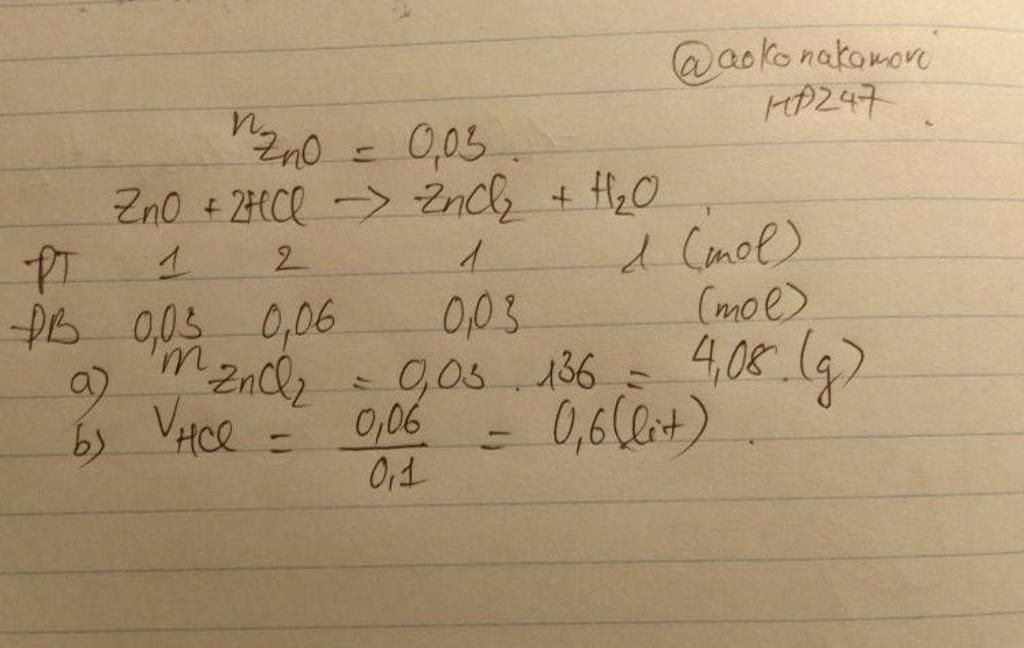 @aokonakamori
HP247
nZnO = 0,03.
ZnO + 2HCl → ZnCl₂ + H₂O
PT 1 2 1 1 (mol)
ĐB 0,03 0,06 0,03 (mol)
a) mZnCl₂ = 0,03 . 136 = 4,08 (g)
b) VHCl = 0,06/0,1 = 0,6 (lit)